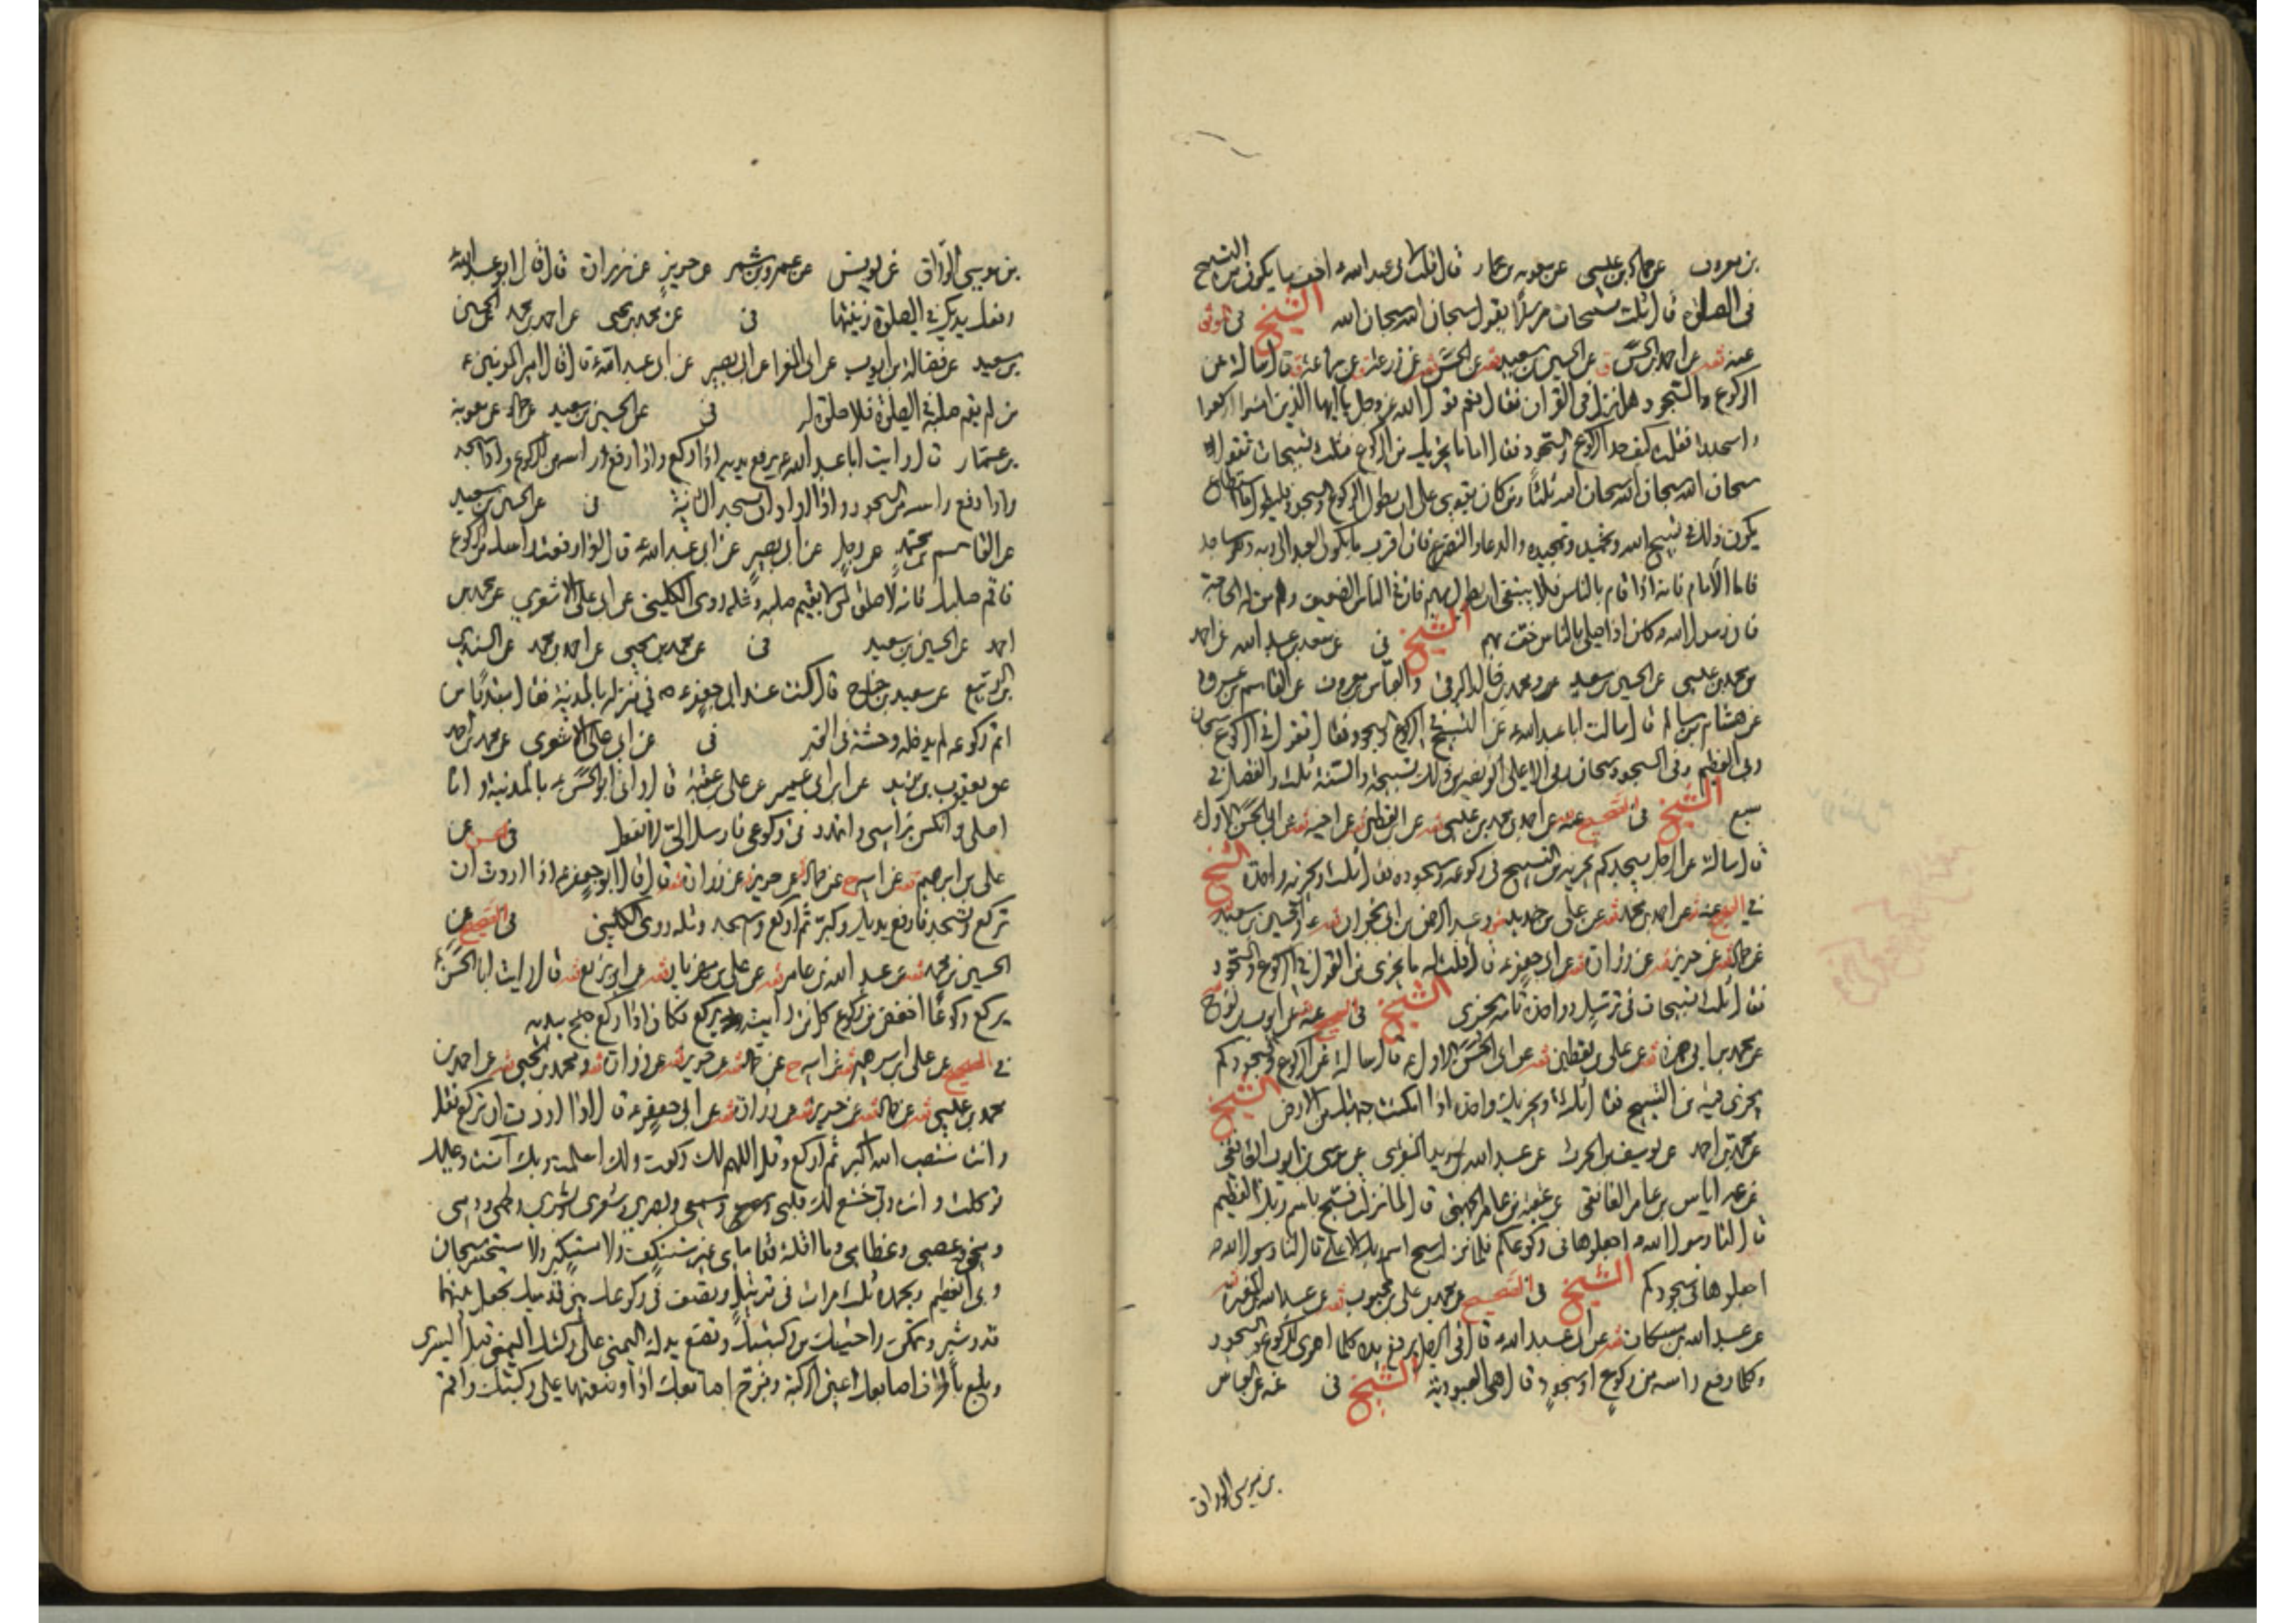 بن معروف عن حماد بن عيسى عن معوية بن عمار قال قلت لابى عبد الله ع اخف ما يكون من التسبيح
فى الصلوة قال ثلث تسبيحات مترسلا يقول سبحان الله سبحان الله سبحان الله الشيخ فى الموثق
عنه عن احمد عن الحسين بن سعيد ثقة عن الحسن ثقة عن زرعة عن سماعة قال سالته عن
الركوع والسجود هل نزل فى القران فقال نعم قول الله عز وجل يا ايها الذين امنوا اركعوا
واسجدوا فقلت كيف حد الركوع والسجود فقال اما ما يجزيك من الركوع فثلث تسبيحات تقول
سبحان الله سبحان الله سبحان الله ثلثا ومن كان يقوى على ان يطول الركوع والسجود فليطول ما استطاع
يكون ذلك فى تسبيح الله وتحميده وتمجيده والدعاء والتضرع فان اقرب ما يكون العبد الى ربه وهو ساجد
فاما الامام فانه اذا قام بالناس فلا ينبغى ان يطول بهم فان فى الناس الضعيف ومن له الحاجة
فان رسول الله ص كان اذا صلى بالناس خف بهم الشيخ فى عن سعد بن عبد الله عن احمد
بن محمد بن عيسى عن الحسين بن سعيد ومحمد بن خالد البرقى والعباس بن معروف عن القاسم بن عروة
عن هشام بن سالم قال سالت ابا عبد الله ع عن التسبيح فى الركوع والسجود فقال تقول فى الركوع سبحان
ربى العظيم وفى السجود سبحان ربى الاعلى الفريضة من ذلك تسبيحة والسنة ثلث والفضل فى
سبع الشيخ فى الصحيح عنه عن احمد بن محمد بن عيسى ثقة عن ابن يقطين ثقة عن اخيه ثقة عن ابى الحسن الاول
قال سالته عن الرجل يسجد كم يجزيه من التسبيح فى ركوعه وسجوده فقال ثلث وتجزيه واحدة الشيخ
فى الصحيح عنه عن احمد بن محمد ثقة عن على بن حديد وعبد الرحمن بن ابى نجران ثقة والحسين بن سعيد
عن حماد ثقة عن حريز ثقة عن زرارة ثقة عن ابى جعفر ع قال قلت له ما يجزى من القول فى الركوع والسجود
فقال ثلث تسبيحات فى ترسل وواحدة تامة تجزى الشيخ فى الصحيح عنه عن ايوب بن نوح
عن محمد بن ابى حمزة ثقة عن على بن يقطين ثقة عن ابى الحسن الاول ع قال سالته عن الركوع والسجود كم
يجزى فيه من التسبيح فقال ثلثة وتجزيك واحدة اذا امكنت جبهتك من الارض الشيخ
عن محمد بن احمد عن يوسف بن الحرث عن عبد الله بن يزيد المنقرى عن موسى بن ايوب الغافقى
عن عمه اياس بن عامر الغافقى عن عقبة بن عامر الجهنى قال لما نزلت فسبح باسم ربك العظيم
قال لنا رسول الله ص اجعلوها فى ركوعكم فلما نزل سبح اسم ربك الاعلى قال لنا رسول الله ص
اجعلوها فى سجودكم الشيخ فى الصحيح عن محمد بن على بن محبوب ثقة عن عبد الله بن المغيرة
عن عبد الله بن مسكان ثقة عن ابى عبد الله ع قال فى الرجل يرفع يده كلما اهوى للركوع والسجود
وكلما رفع راسه من ركوع او سجود قال هى العبودية الشيخ فى عنه عن العباس
بن موسى الوراق
بن موسى الوراق عن يونس عن عمرو بن شمر عن حريز عن زرارة قال قال ابو عبد الله ع
رفعك يديك فى الصلوة زينتها فى عن محمد بن يحيى عن احمد بن محمد عن الحسين
بن سعيد عن فضالة بن ايوب عن ابى المغرا عن ابى بصير عن ابى عبد الله ع قال قال امير المومنين ع
من لم يقم صلبه فى الصلوة فلا صلوة له فى عن الحسين بن سعيد عن حماد عن معوية
بن عمار قال رايت ابا عبد الله ع يرفع يديه اذا ركع واذا رفع راسه من الركوع واذا سجد
واذا رفع راسه من السجود واذا اراد ان يسجد الثانية فى عن الحسين بن سعيد
عن القاسم بن محمد عن رجل عن ابى بصير عن ابى عبد الله ع قال اذا رفعت راسك من الركوع
فاقم صلبك فانه لا صلوة لمن لا يقيم صلبه ومثله روى الكلينى عن ابى على الاشعرى عن محمد بن
احمد عن الحسين بن سعيد فى عن محمد بن يحيى عن احمد بن محمد عن السندى
بن الربيع عن سعيد بن جناح قال كنت عند ابى جعفر ع فى منزله بالمدينة فقال مبتديا من
اتم ركوعه لم يدخله وحشة فى القبر فى عن ابى على الاشعرى عن محمد بن احمد
عن يعقوب بن يزيد عن ابن ابى عمير عن على بن عقبة قال رانى ابو الحسن ع بالمدينة وانا
اصلى وانكس براسى واتمدد فى ركوعى فارسل الى لا تفعل فى الحسن عن
على بن ابرهيم ثقة عن ابيه ح عن حماد عن حريز عن زرارة ثقة قال قال ابو جعفر ع اذا اردت ان
تركع وتسجد فارفع يديك وكبر ثم اركع واسجد ومثله روى الكلينى فى الصحيح عن
الحسين بن محمد ثقة عن عبد الله بن عامر ثقة عن على بن مهزيار ثقة عن ابن بزيع ثقة قال رايت ابا الحسن ع
يركع ركوعا اخفض من ركوع كل من رايته يركع فكان اذا ركع جنح بيديه
فى الصحيح عن على بن ابرهيم ثقة عن ابيه ح عن حماد ثقة عن حريز ثقة عن زرارة ثقة ومحمد بن يحيى ثقة عن احمد بن
محمد بن عيسى ثقة عن حماد ثقة عن حريز ثقة عن زرارة ثقة عن ابى جعفر ع قال اذا اردت ان تركع فقل
وانت منتصب الله اكبر ثم اركع وقل اللهم لك ركعت ولك اسلمت وبك امنت وعليك
توكلت وانت ربى خشع لك قلبى وسمعى وبصرى وشعرى وبشرى ولحمى ودمى
ومخى وعصبى وعظامى وما اقلته قدماى غير مستنكف ولا مستكبر ولا مستحسر سبحان
ربى العظيم وبحمده ثلث مرات فى ترتيل وتصف فى ركوعك بين قدميك تجعل بينهما
قدر شبر وتمكن راحتيك من ركبتيك وتضع يدك اليمنى على ركبتك اليمنى قبل اليسرى
وبلع باطراف اصابعك عين الركبة وفرج اصابعك اذا وضعتها على ركبتيك واقم